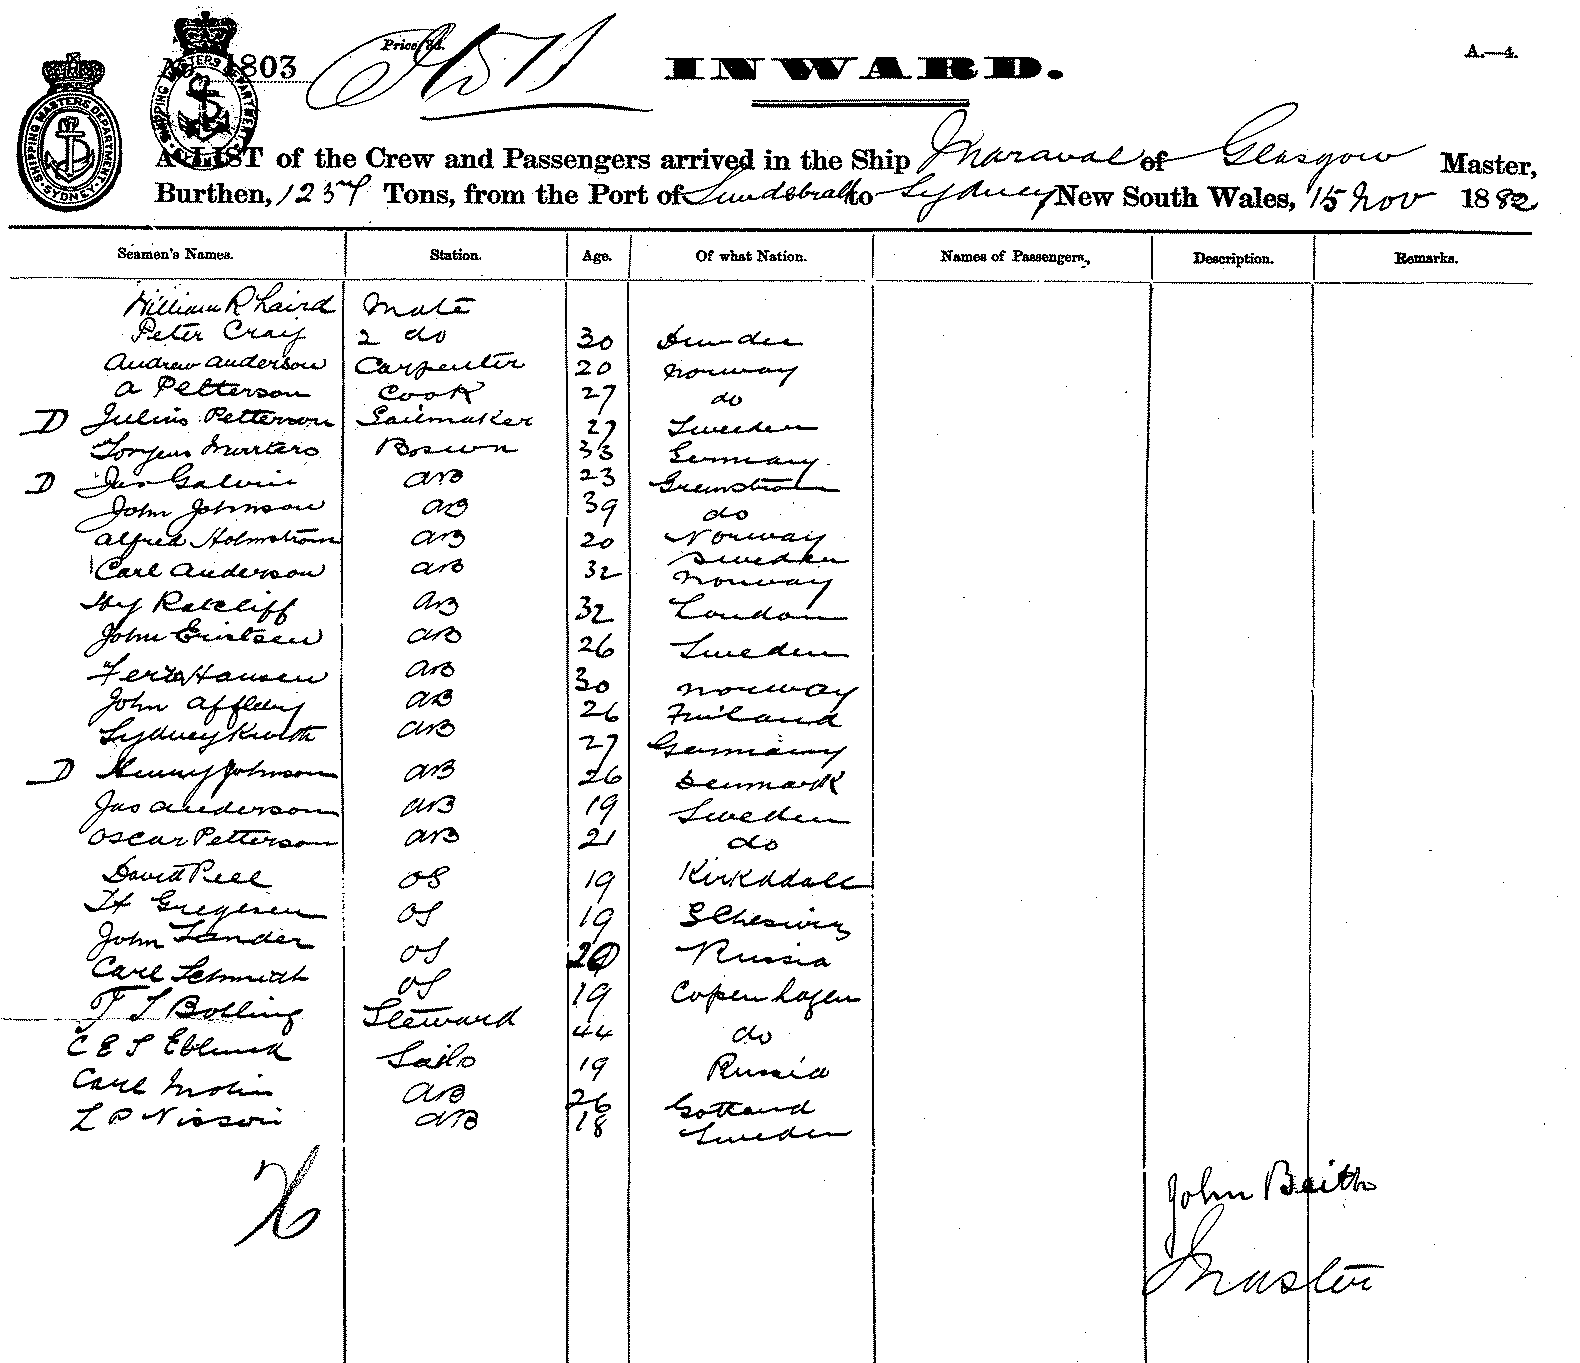 SHIPPING MASTERS DEPARTMENT SYDNEY
SHIPPING MASTERS DEPARTMENT
No. 1803
Price 3d.
INWARD.
A.—4.
A LIST of the Crew and Passengers arrived in the Ship Maraval of Glasgow Master,
Burthen, 1237 Tons, from the Port of Sundsvall to Sydney New South Wales, 15 Nov 1882
Seamen's Names. Station. Age. Of what Nation. Names of Passengers, Description. Remarks.
William R Laird Mate
Peter Craig 2 do 30 Dundee
Andrew Anderson Carpenter 20 Norway
A Petterson Cook 27 do
D Julius Petterson Sailmaker 27 Sweden
Bosun 33 Germany
D Jas Galvin AB 23
John Johnson AB 39 do
Alfred Holmstrom AB 20 Norway
Sweden
Carl Anderson AB 32 Norway
Hy Ratcliff AB 32 London
John AB 26 Sweden
Hansen AB 30 Norway
John AB 26 Finland
Sydney AB 27 Germany
D Henry Johnson AB 26 Denmark
Jas Anderson AB 19 Sweden
Oscar Petterson AB 21 do
David Peel OS 19 Kirkddall
H Gregersen OS 19
John Sander OS 20 Russia
Carl Schmidth OS 19 Copenhagen
F S Bolling Steward 44 do
C E S Sails 19 Russia
Carl Molin AB 26 Gottland
L P AB 18 Sweden
John Beith
Master